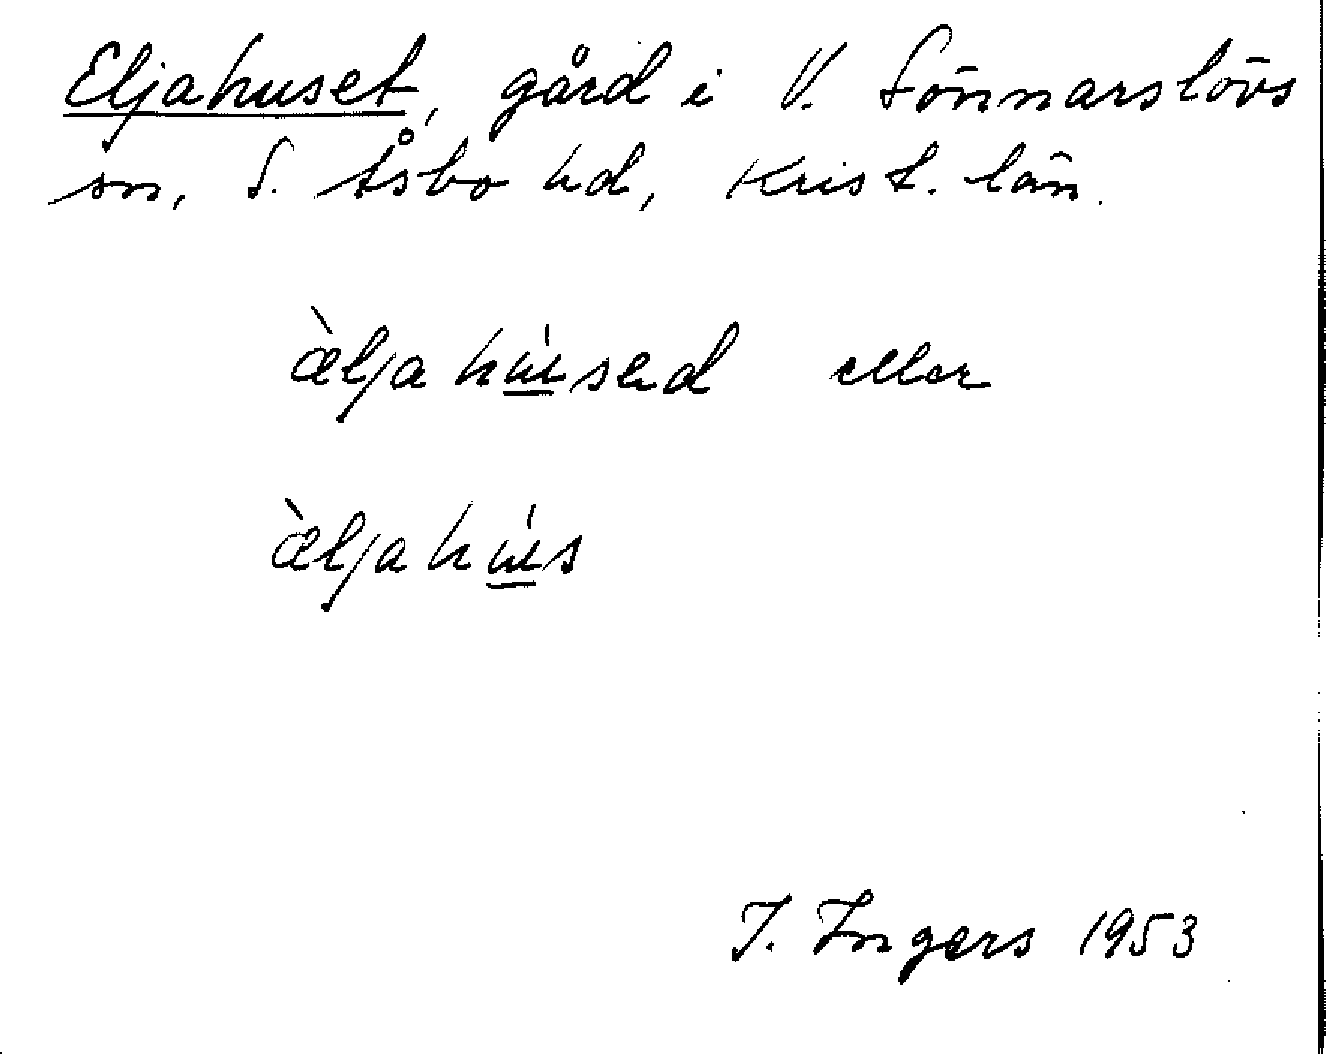 Eljahuset, gård i V. Sönnarslövs
sn, S. Åsbo hd, Krist. län.
æ̀ljahúsed eller
æ̀ljahús
I. Ingers 1953